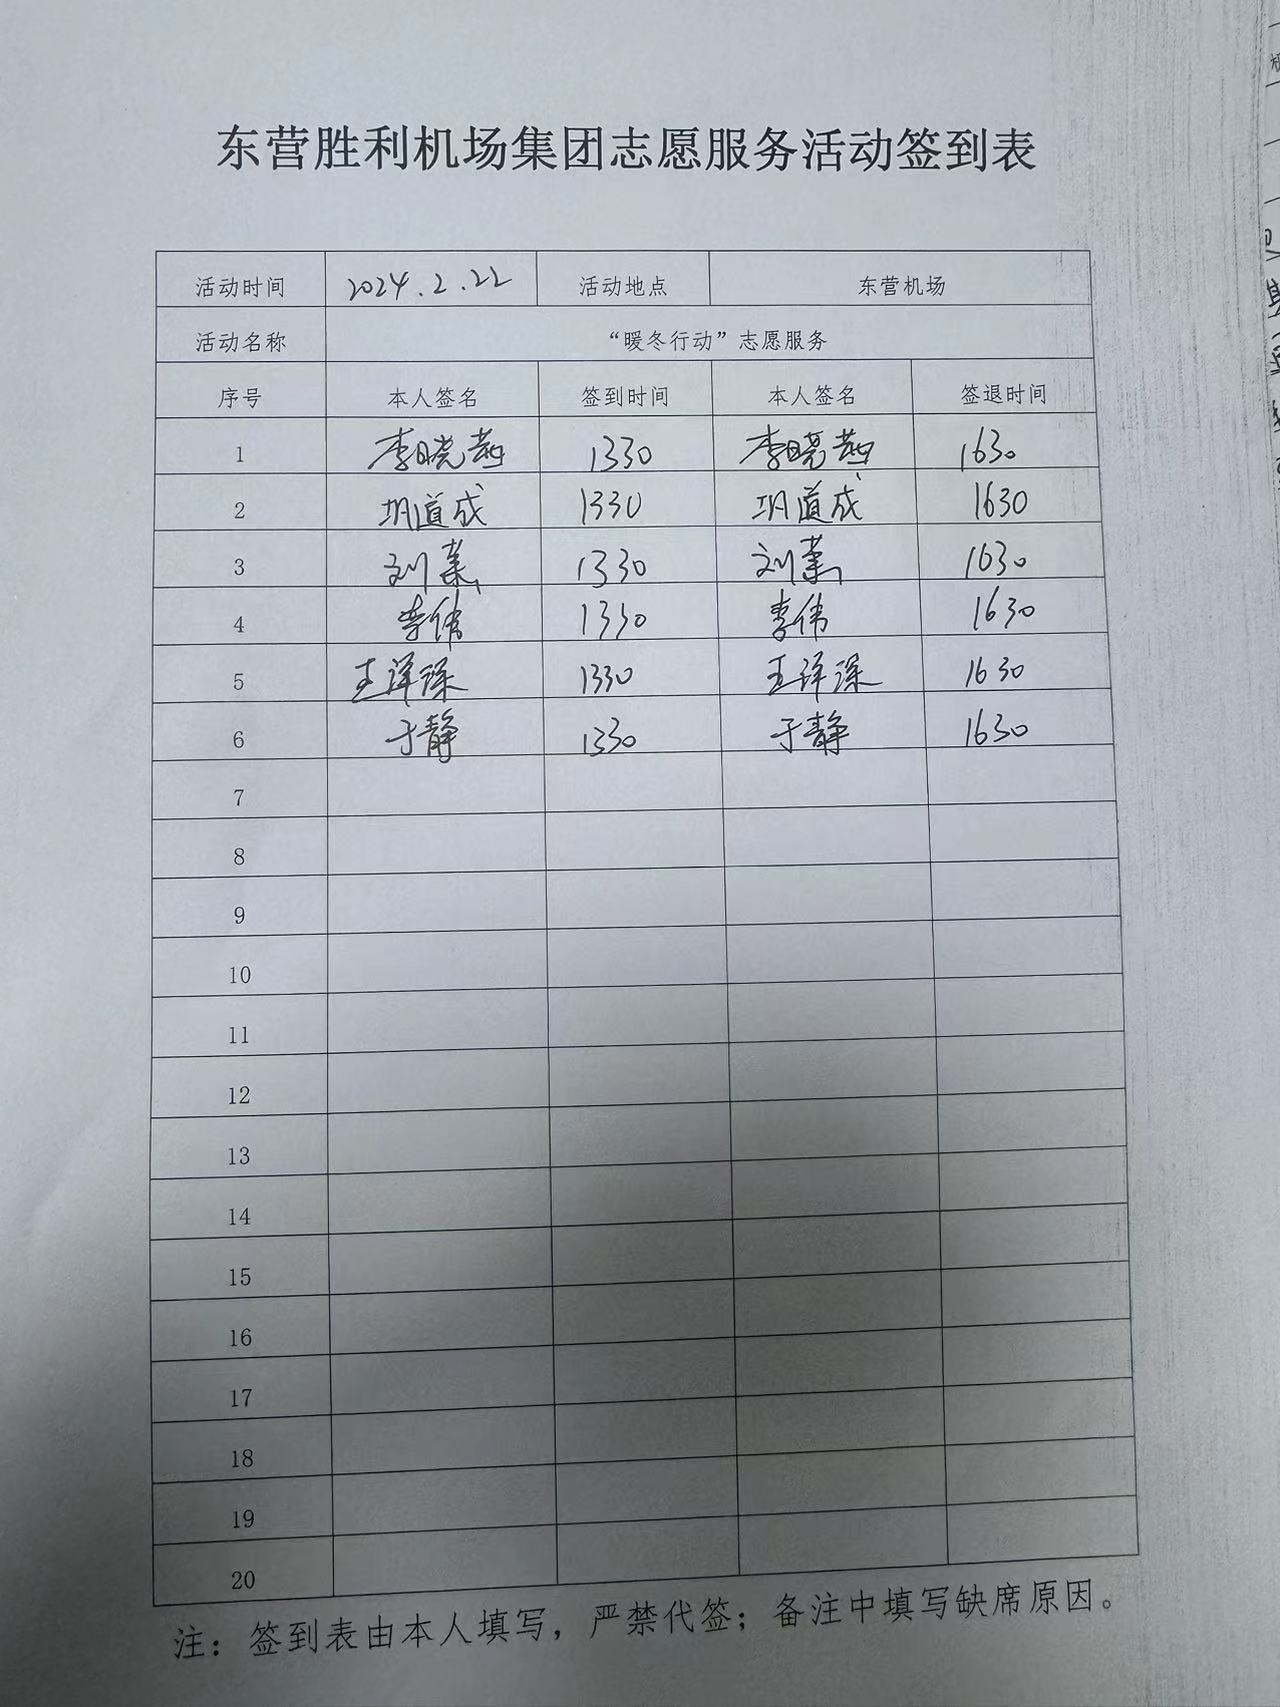 东营胜利机场集团志愿服务活动签到表
活动时间 2024.2.22 活动地点 东营机场
活动名称 “暖冬行动”志愿服务
序号 本人签名 签到时间 本人签名 签退时间
1 李晓燕 1330 李晓燕 1630
2 巩道成 1330 巩道成 1630
3 刘 1330 刘 1630
4 李伟 1330 李伟 1630
5 王泽深 1330 王泽深 1630
6 于静 1330 于静 1630
7
8
9
10
11
12
13
14
15
16
17
18
19
20
注：签到表由本人填写，严禁代签；备注中填写缺席原因。